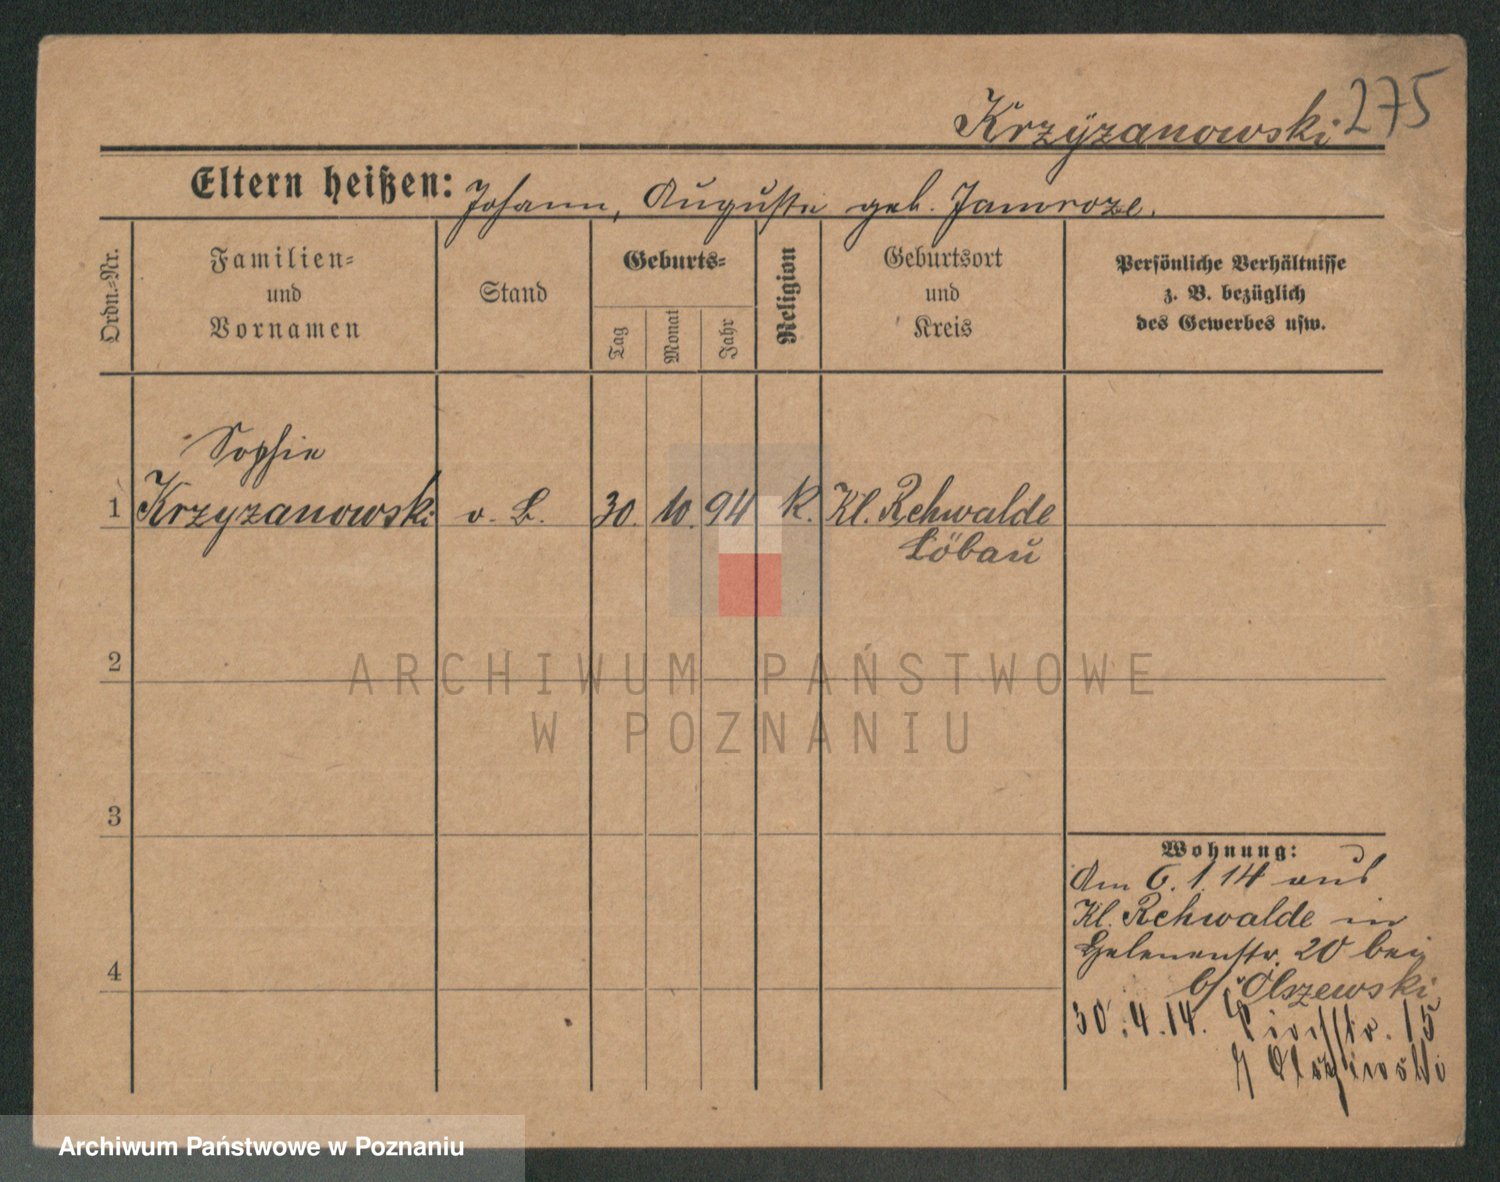 Krzÿzanowski 275
Eltern heißen: Johann, Auguste geb. Jamroze.
Ordn.-Nr.
Familien-
und
Vornamen
Stand
Geburts-
Tag
Monat
Jahr
Religion
Geburtsort
und
Kreis
Persönliche Verhältnisse
z. B. bezüglich
des Gewerbes usw.
Sophie
1 Krzyzanowski o. B. 30. 10. 94 K. Kl. Rehwalde
Löbau
2
3
4
Wohnung:
Am 6. 1. 14 aus
Kl. Rehwalde in
Helenenstr. 20 bei
b/ Olszewski
30. 4. 14. 15
ARCHIWUM PAŃSTWOWE
W POZNANIU
Archiwum Państwowe w Poznaniu